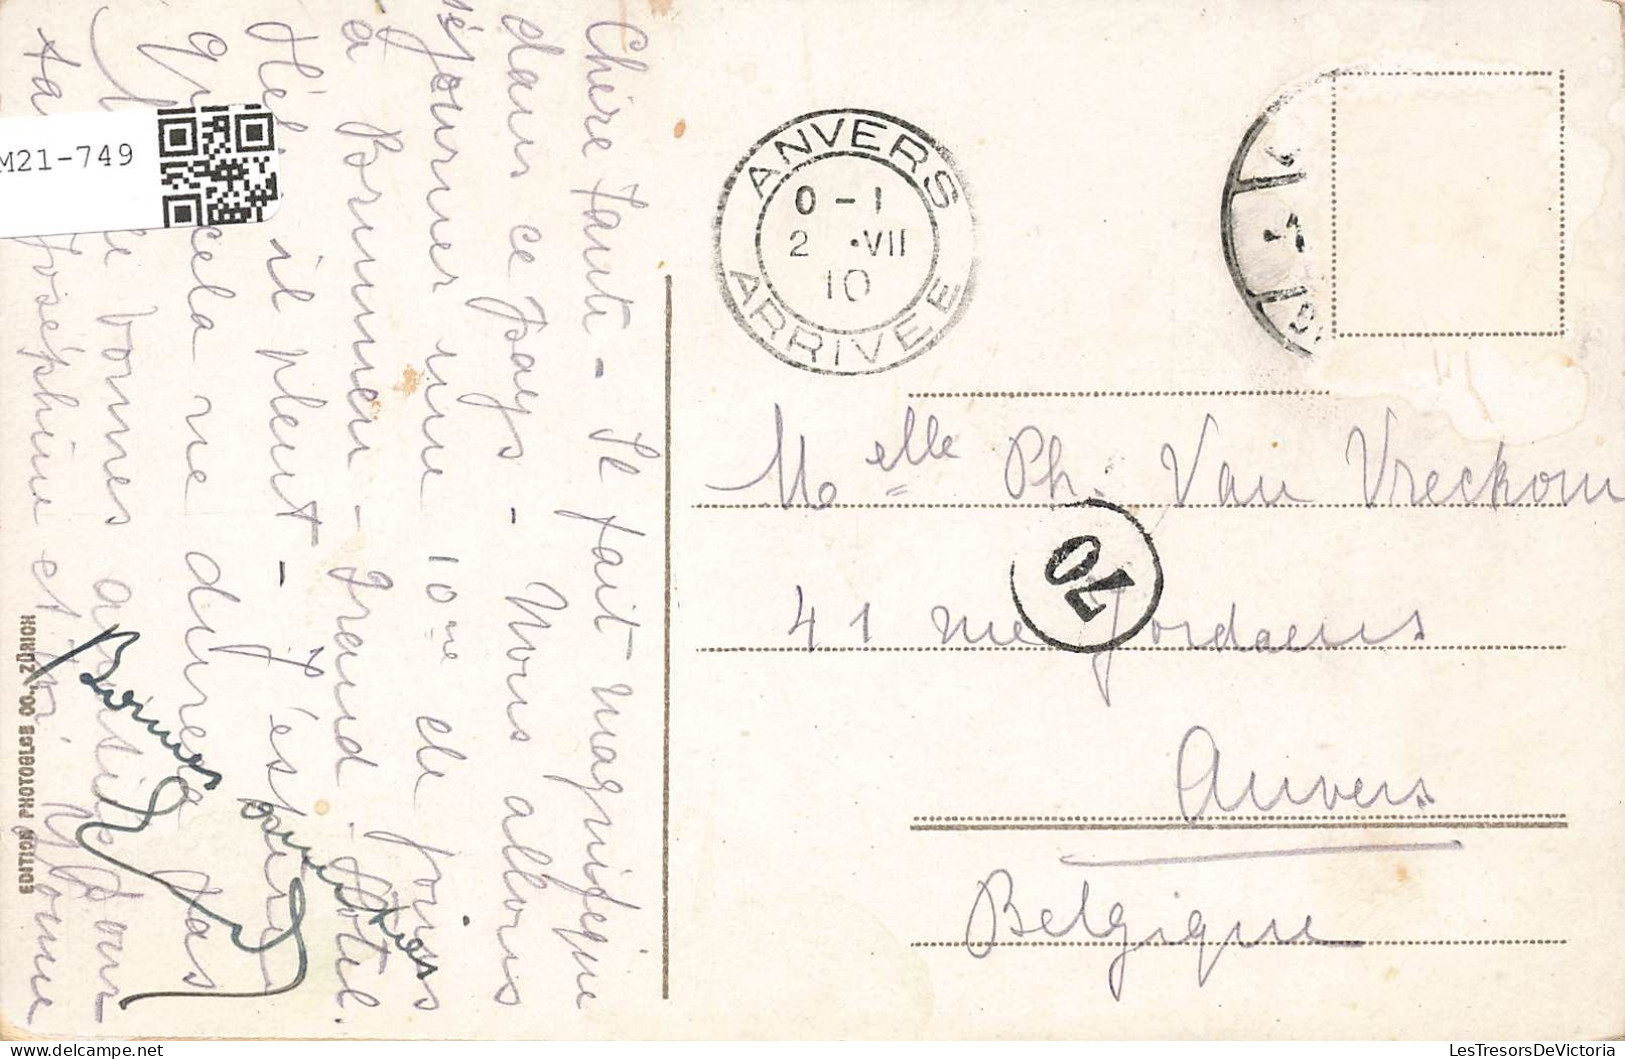 Chère tante - Il fait magnifique
dans ce pays - Nous allons
séjourner une 10ne de jours
à Brunnen - Grand. Hotel.
il pleut - J'espère
cela ne durera pas
bonnes amitiés pour
Joséphine et toi Yvonne
Bonnes amitiés
EDITION PHOTOGLOB CO., ZÜRICH
M21-749
ANVERS
0-1
2 ·VII
10
ARRIVEE
Melle Ph. Van Vreckom
70
41 rue Jordaens
Anvers
Belgique
LesTresorsDeVictoria